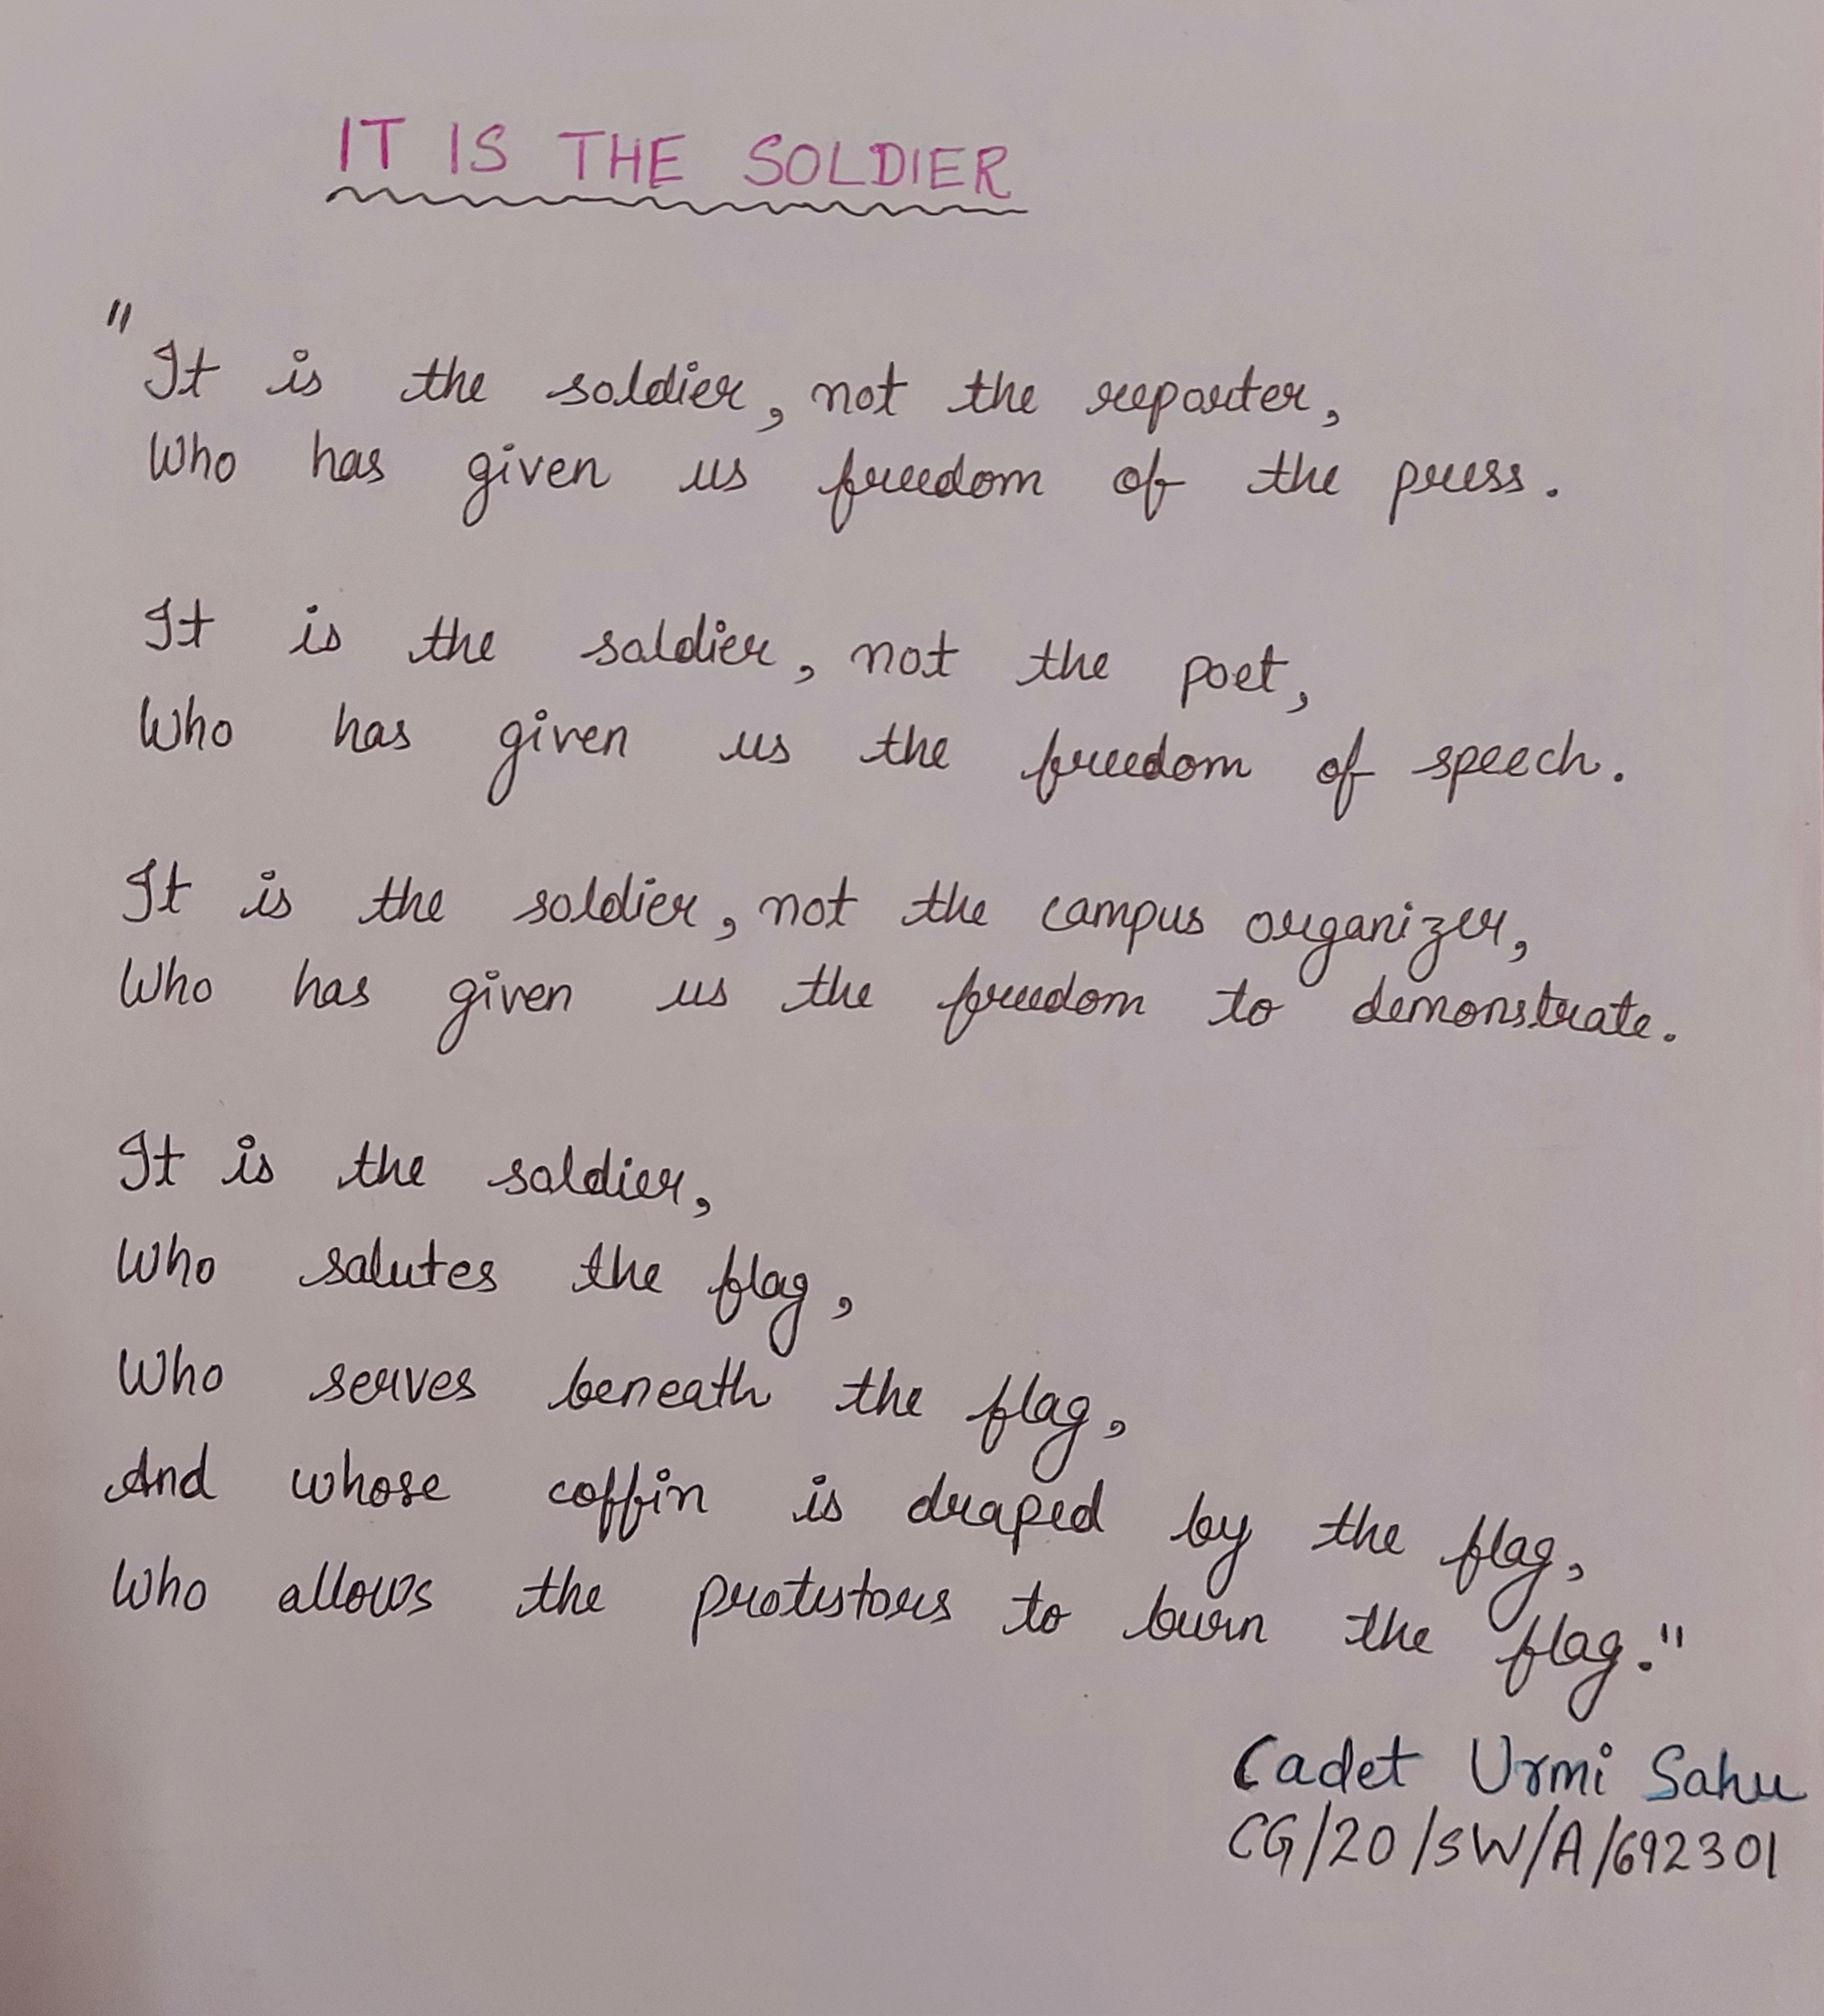 IT IS THE SOLDIER
"It is the soldier, not the reporter,
Who has given us freedom of the press.
It is the soldier, not the poet,
Who has given us the freedom of speech.
It is the soldier, not the campus organizer,
Who has given us the freedom to demonstrate.
It is the soldier,
Who salutes the flag,
Who serves beneath the flag,
And whose coffin is draped by the flag,
Who allows the protestors to burn the flag."
Cadet Urmi Sahu
CG/20/SW/A/692301